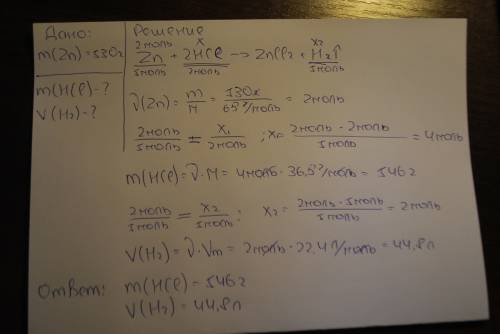 Дано:
m(Zn)=130г
m(HCl)-?
V(H₂)-?
Решение
2моль x₁ x₂
Zn + 2HCl → ZnCl₂ + H₂↑
1моль 2моль 1моль
ν(Zn) = m/M = 130г / 65г/моль = 2моль
2моль/1моль = x₁/2моль ; x₁ = 2моль · 2моль / 1моль = 4моль
m(HCl) = ν · M = 4моль · 36,5г/моль = 146г
2моль/1моль = x₂/1моль ; x₂ = 2моль · 1моль / 1моль = 2моль
V(H₂) = ν · Vm = 2моль · 22,4л/моль = 44,8л
Ответ: m(HCl) = 146г
V(H₂) = 44,8л